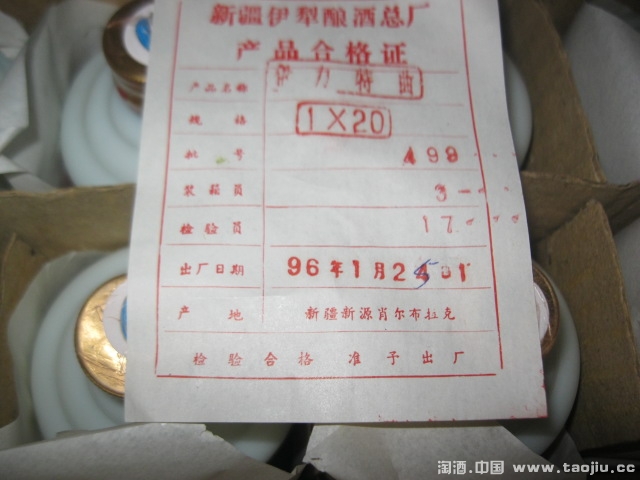 新疆伊犁酿酒总厂
产品合格证
产品名称 伊力特曲
规格 1X20
批号 499
装箱员 3-
检验员 17
出厂日期 96年1月25日
产地 新疆新源肖尔布拉克
检验合格 准予出厂
淘酒.中国 www.taojiu.cc